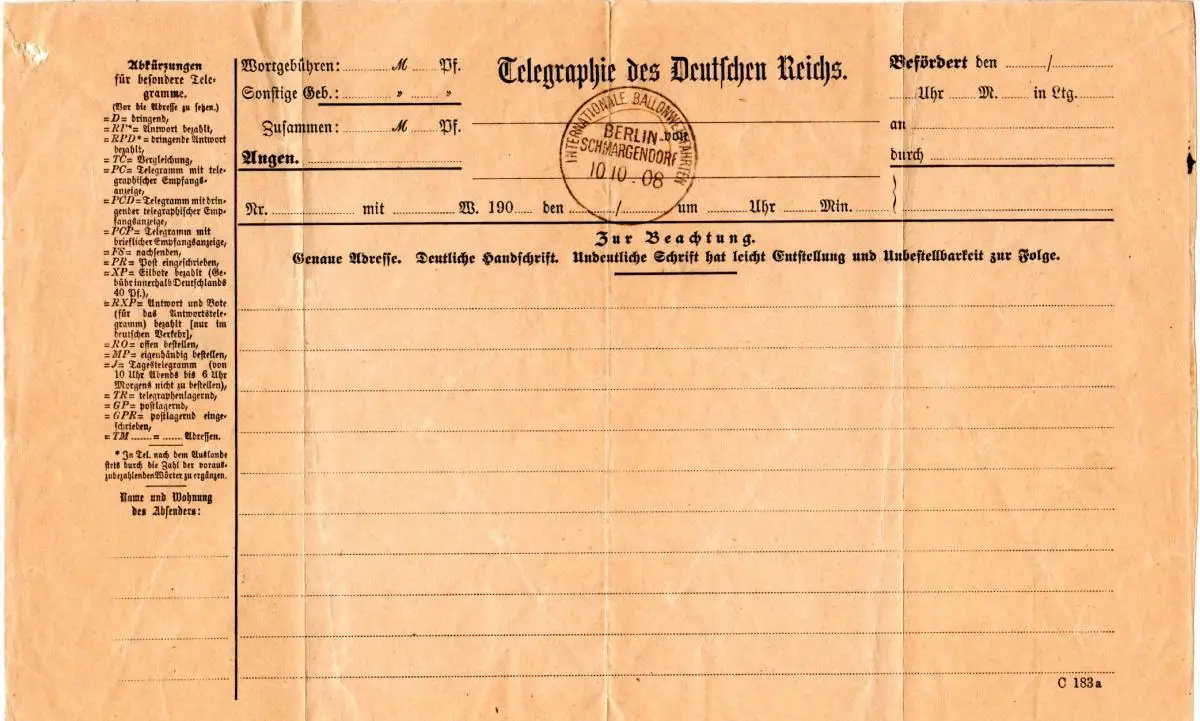 Abkürzungen
für besondere Tele-
gramme.
(Vor die Adresse zu setzen.)
=D= dringend,
=RP*= Antwort bezahlt,
=RPD*= dringende Antwort
bezahlt,
=TC= Vergleichung,
=PC= Telegramm mit tele-
graphischer Empfangs-
anzeige,
=PCD= Telegramm mit drin-
gender telegraphischer Emp-
fangsanzeige,
=PCP= Telegramm mit
brieflicher Empfangsanzeige,
=FS= nachsenden,
=PR= Post eingeschrieben,
=XP= Eilbote bezahlt (Ge-
bühr innerhalb Deutschlands
40 Pf.),
=RXP= Antwort und Bote
(für das Antwortstele-
gramm) bezahlt [nur im
deutschen Verkehr],
=RO= offen bestellen,
=MP= eigenhändig bestellen,
=J= Tagestelegramm (von
10 Uhr Abends bis 6 Uhr
Morgens nicht zu bestellen),
=TR= telegraphenlagernd,
=GP= postlagernd,
=GPR= postlagernd einge-
schrieben,
=TM ....... = ....... Adressen.
* In Tel. nach dem Auslande
stets durch die Zahl der voraus-
zubezahlenden Wörter zu ergänzen.
Name und Wohnung
des Absenders:
Wortgebühren: ........ M ..... Pf.
Sonstige Geb.: ........ " ..... "
Zusammen: ........ M ..... Pf.
Angen. ........
Telegraphie des Deutschen Reichs.
von
INTERNATIONALE BALLONWETTFAHRTEN
BERLIN
SCHMARGENDORF
10 10 . 08
Befördert den ........ / ........
..... Uhr ..... M. ..... in Ltg. ........
an ........
durch ........
Nr. ........ mit ........ W. 190..... den ........ / ........ um ........ Uhr ........ Min. ........
Zur Beachtung.
Genaue Adresse. Deutliche Handschrift. Undeutliche Schrift hat leicht Entstellung und Unbestellbarkeit zur Folge.
C 183a